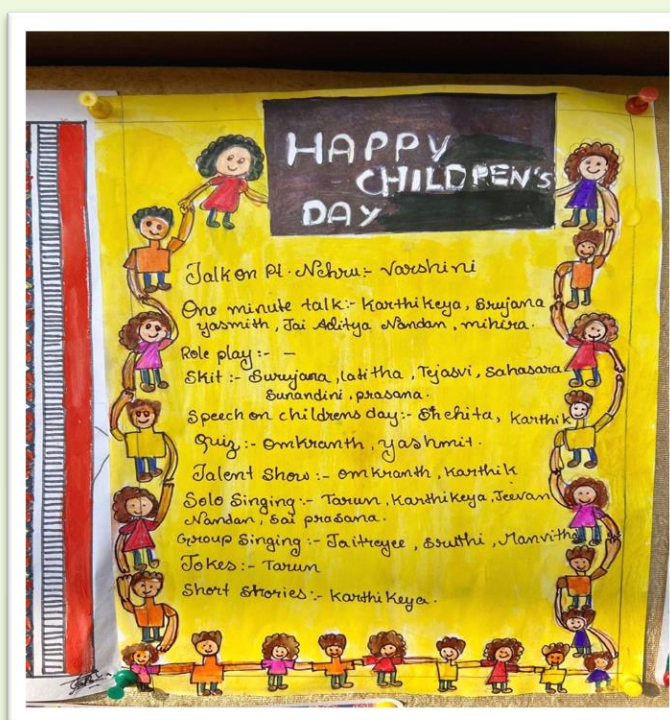 HAPPY
CHILDREN'S
DAY
Talk on Pt. Nehru:- Varshini
One minute talk:- Karthikeya, Srujana
yasmith, Jai Aditya Nandan, mihira.
Role play:- -
Skit:- Surujana, lalitha, Tejasvi, Sahasara
Sunandini, prasana.
Speech on childrens day:- Shehita, Karthik
Quiz:- Omkranth, yashmit.
Talent Show:- om kranth, Karthik
Solo Singing:- Tarun, Karthikeya, Jeevan
Nandan, Sai prasana.
Group Singing:- Jaitreyee, Sruthi, Manvitha
Jokes:- Tarun
Short Stories:- Karthikeya.